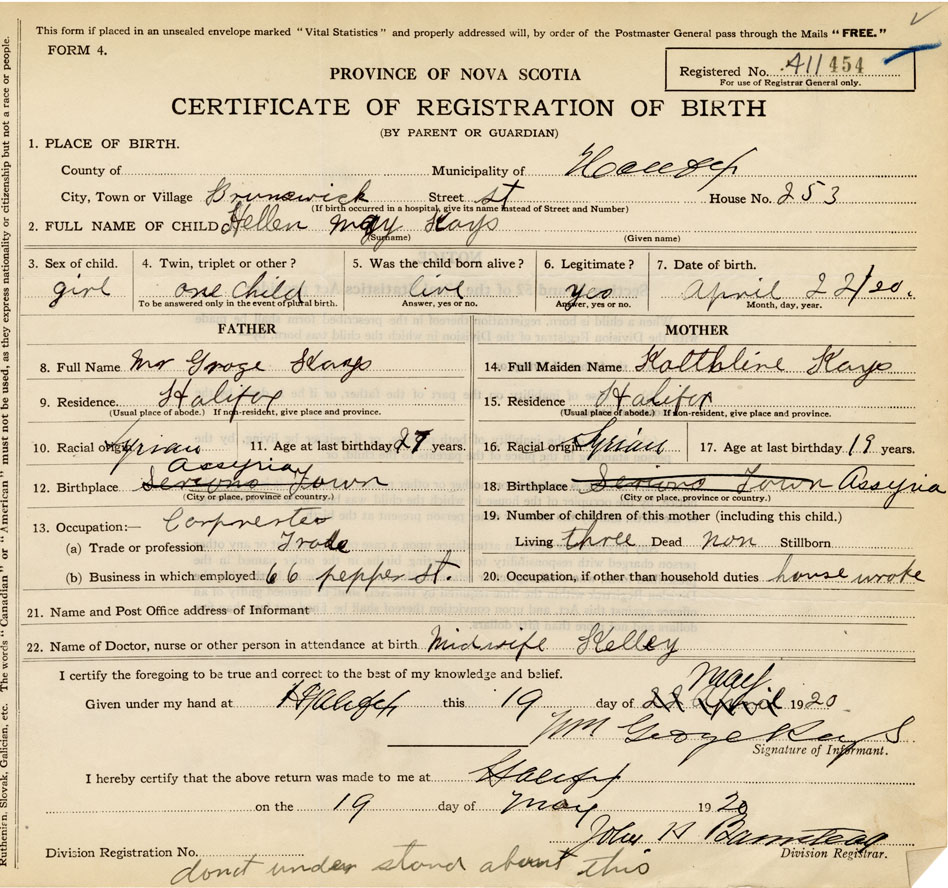 This form if placed in an unsealed envelope marked "Vital Statistics" and properly addressed will, by order of the Postmaster General pass through the Mails "FREE."
FORM 4.
Registered No. 411 454
For use of Registrar General only.
PROVINCE OF NOVA SCOTIA
CERTIFICATE OF REGISTRATION OF BIRTH
(BY PARENT OR GUARDIAN)
1. PLACE OF BIRTH.
County of Municipality of
City, Town or Village Brunswick Street St House No. 253
(If birth occurred in a hospital, give its name instead of Street and Number)
2. FULL NAME OF CHILD Hellen may Kays
(Surname) (Given name)
3. Sex of child. 4. Twin, triplet or other? 5. Was the child born alive? 6. Legitimate? 7. Date of birth.
girl one child live yes April 22/20.
To be answered only in the event of plural birth. Answer, yes or no. Answer, yes or no. Month, day, year.
FATHER MOTHER
8. Full Name Mr Groge Kays 14. Full Maiden Name Kathbline Kays
9. Residence. Halifax 15. Residence Halifax
(Usual place of abode.) If non-resident, give place and province. (Usual place of abode.) If non-resident, give place and province.
10. Racial origin Syrian 11. Age at last birthday 27 years. 16. Racial origin Syrian 17. Age at last birthday 19 years.
Assyria
12. Birthplace Town 18. Birthplace Town Assyria
(City or place, province or country.) (City or place, province or country.)
13. Occupation:— Corpnrenter 19. Number of children of this mother (including this child.)
(a) Trade or profession Trade Living three Dead non Stillborn
(b) Business in which employed 66 pepper st. 20. Occupation, if other than household duties house wrote
21. Name and Post Office address of Informant
22. Name of Doctor, nurse or other person in attendance at birth Midwife Kelley
I certify the foregoing to be true and correct to the best of my knowledge and belief.
May
Given under my hand at Halifax this 19 day of 22 April 1920
George Kays
Signature of Informant.
I hereby certify that the above return was made to me at Halifax
on the 19 day of May 1920
John H Barnstead
Division Registrar.
Division Registration No.
donct under stand about this
Ruthenian, Slovak, Galician, etc. The words "Canadian" or "American" must not be used, as they express nationality or citizenship but not a race or people.